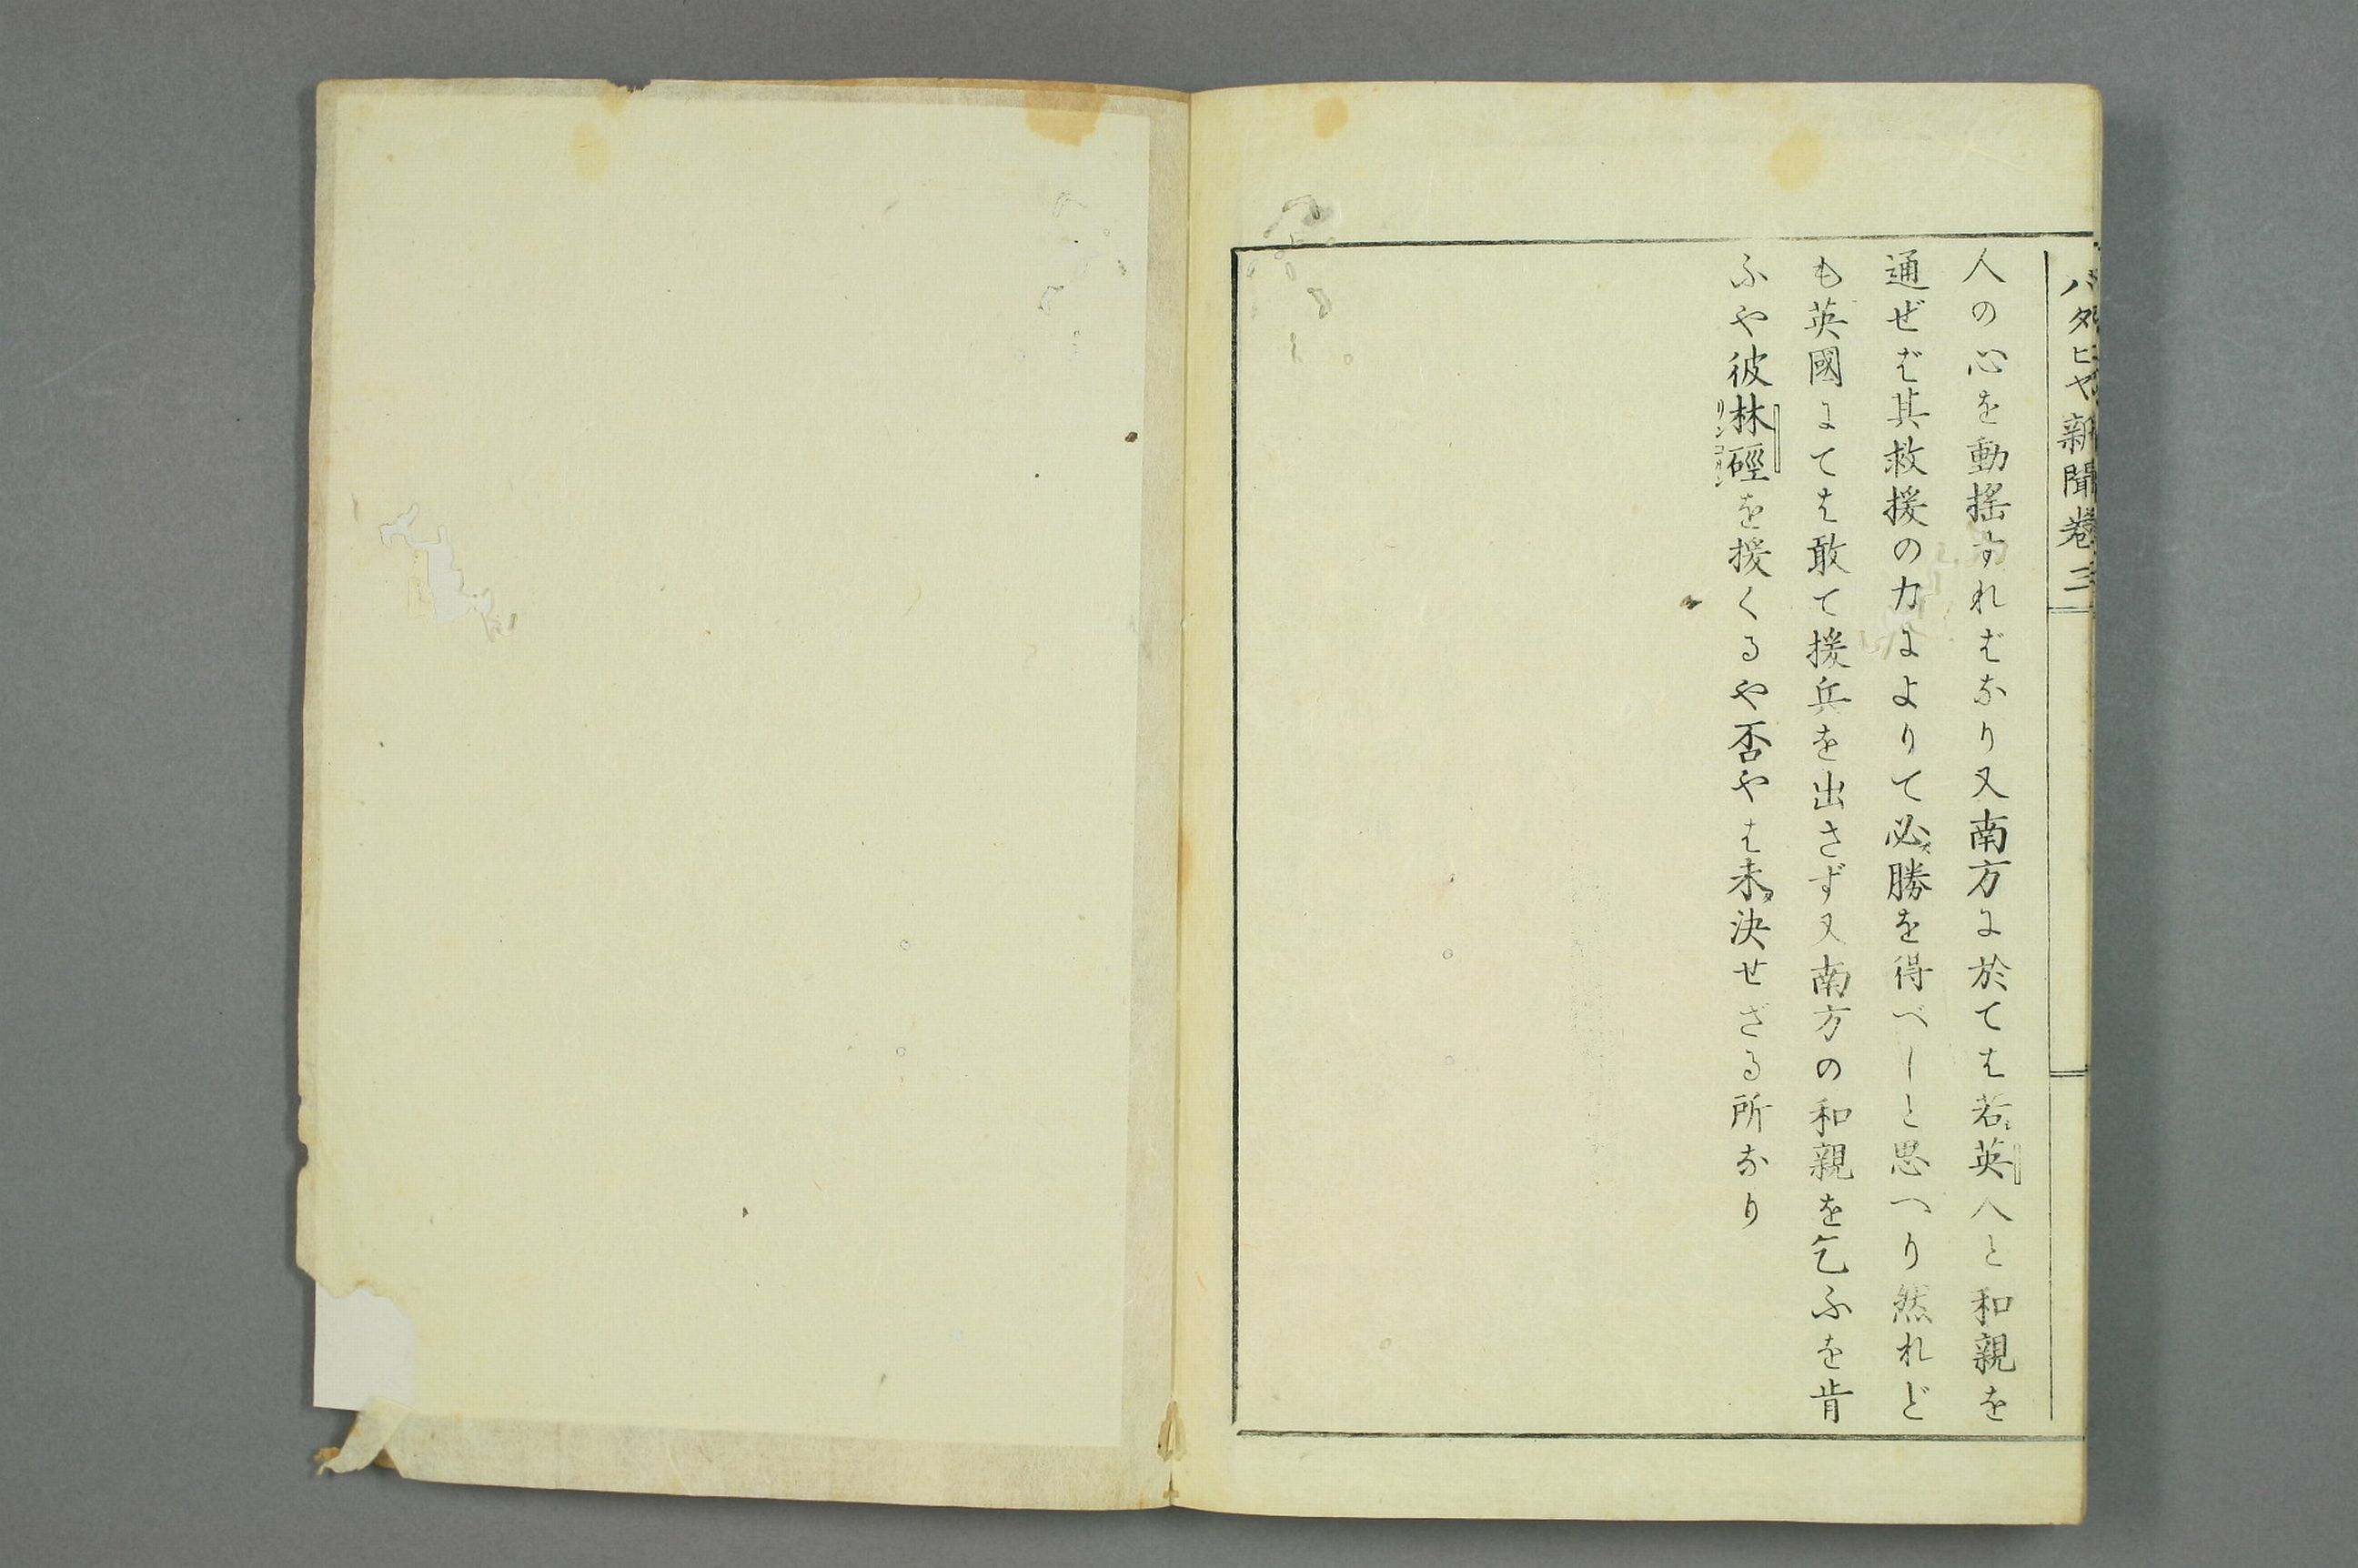 バタビヤ新聞巻三
人の心を動揺すればなり又南方に於ては若シ英人と和親を
通ぜば其救援の力によりて必ス勝を得べしと思へり然れど
も英國にては敢て援兵を出さず又南方の和親を乞ふを肯
ふや彼林硜リンコルンを援くるや否やは未タ決せざる所なり